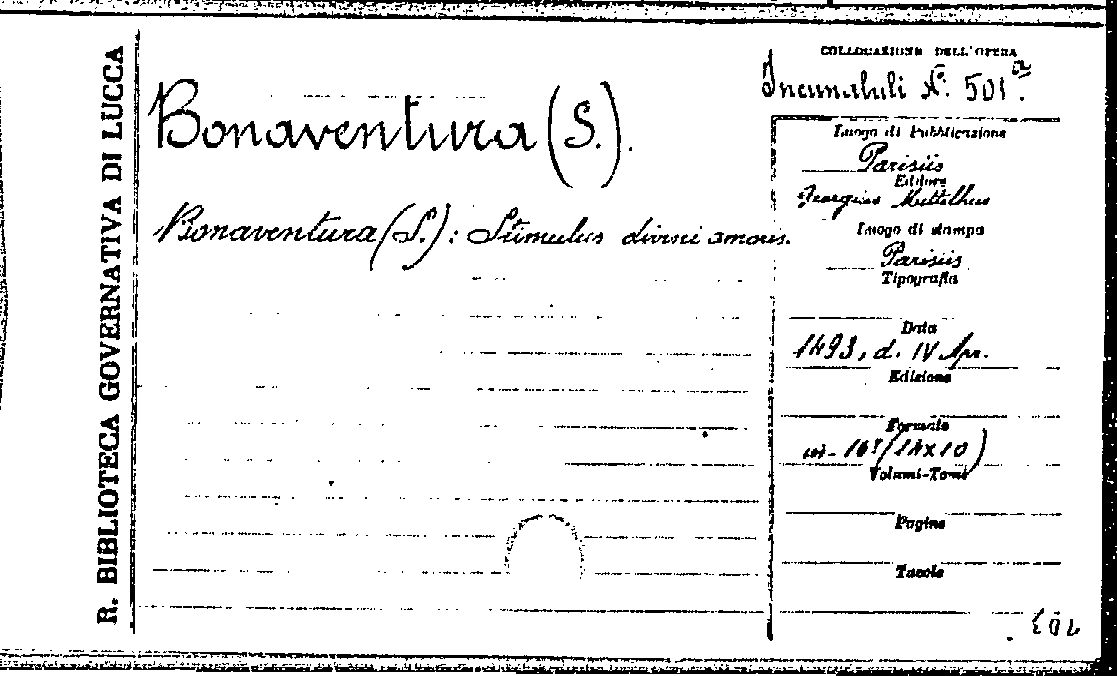 R. BIBLIOTECA GOVERNATIVA DI LUCCA
Bonaventura (S.).
Bonaventura (S.): Stimulus divini amoris.
COLLOCAZIONE DELL'OPERA
Incunabuli N.º 501ª.
Luogo di Pubblicazione
Parisiis
Editore
Georgius Mittelhus
Luogo di stampa
Parisiis
Tipografia
Data
1493, d. IV Apr.
Edizione
Formato
in-16º (14x10)
Volumi-Tomi
Pagine
Tavole